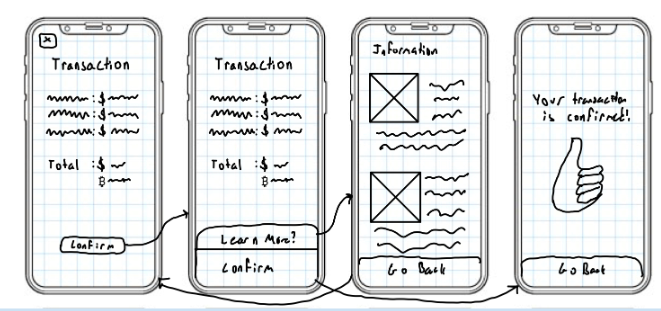 x
Transaction
: $
: $
: $
Total : $
₿
Confirm
Transaction
: $
: $
: $
Total : $
₿
Learn More?
Confirm
Information
Go Back
Your transaction
is confirmed!
Go Back